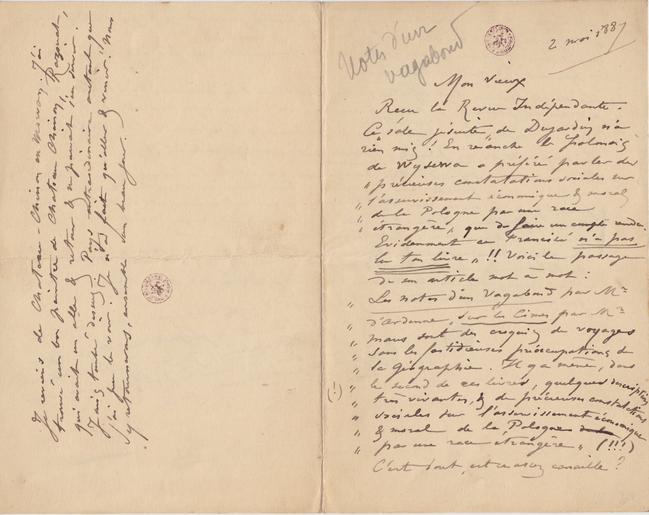 Notes d'un
vagabond
2 mai 1887
Mon vieux
Recu la Revue Indépendante.
Ce sale jésuite, de Dujardin n'a
rien mis! En revanche le polonais
de Wyzewa a préféré parler des
"précieuses constatations sociales sur
"l'asservissement économique & moral
"de la Pologne par une race
étrangère, que de faire un compte rendu.
Evidemment ce Francisé n'a pas
lu ton livre"!! Voici le passage
de son article mot à mot:
"Les notes d'un vagabond par Mr
"d'Ardenne, sur les Cimes par Mr
"
"maus sont des croquis de voyages
"sans les fastidieuses préoccupations de
"la géographie. Il y a même, dans
"le second de ces livres, quelques descriptions
"très vivantes, & de précieuses constatations
"sociales sur l'asservissement économique
"& moral de la Pologne
"par une race étrangère" (!!!)
C'est tout, est-ce assez canaille?
Je reviens de Chateau-Chinon en Morvan. J'ai
trouvé un bon peintre de Chateau Chinon,
qui avait un elle & retour &
J'ai Pays extraordinaire autant que
j'ai pu le voir. Je n'ai fait qu'aller & venir. Nous
y retournerons, ensemble un beau jour.